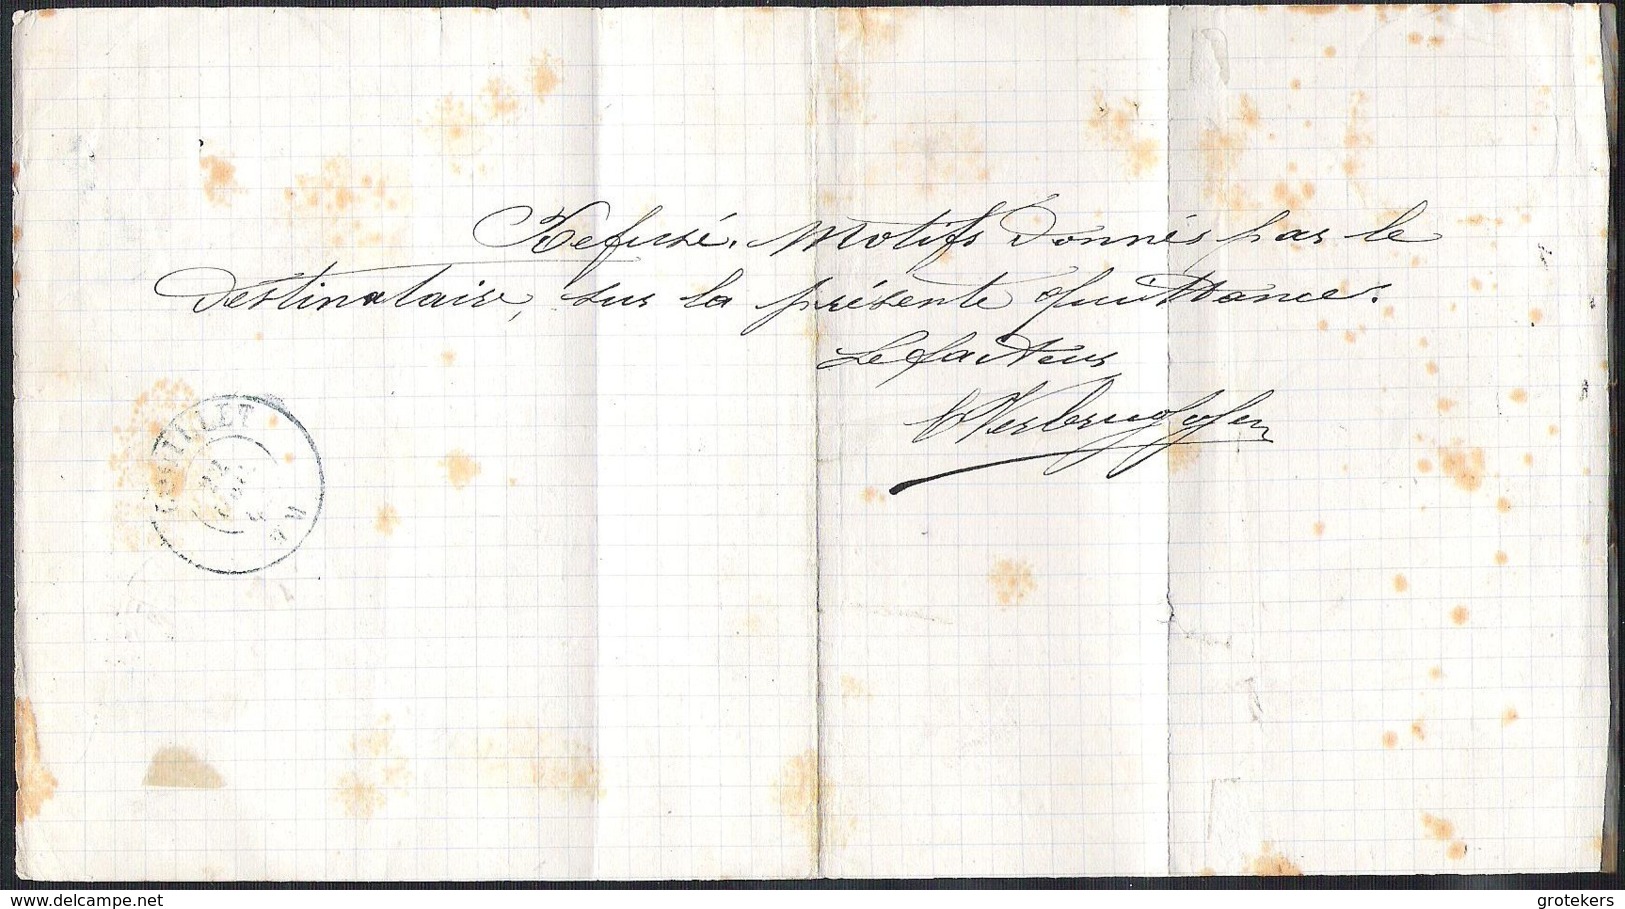 Refusé. Motifs Donnés par le
Destinataire, sur la présente quittance.
Le facteur
COUILLET
delcampe.net
grotekers